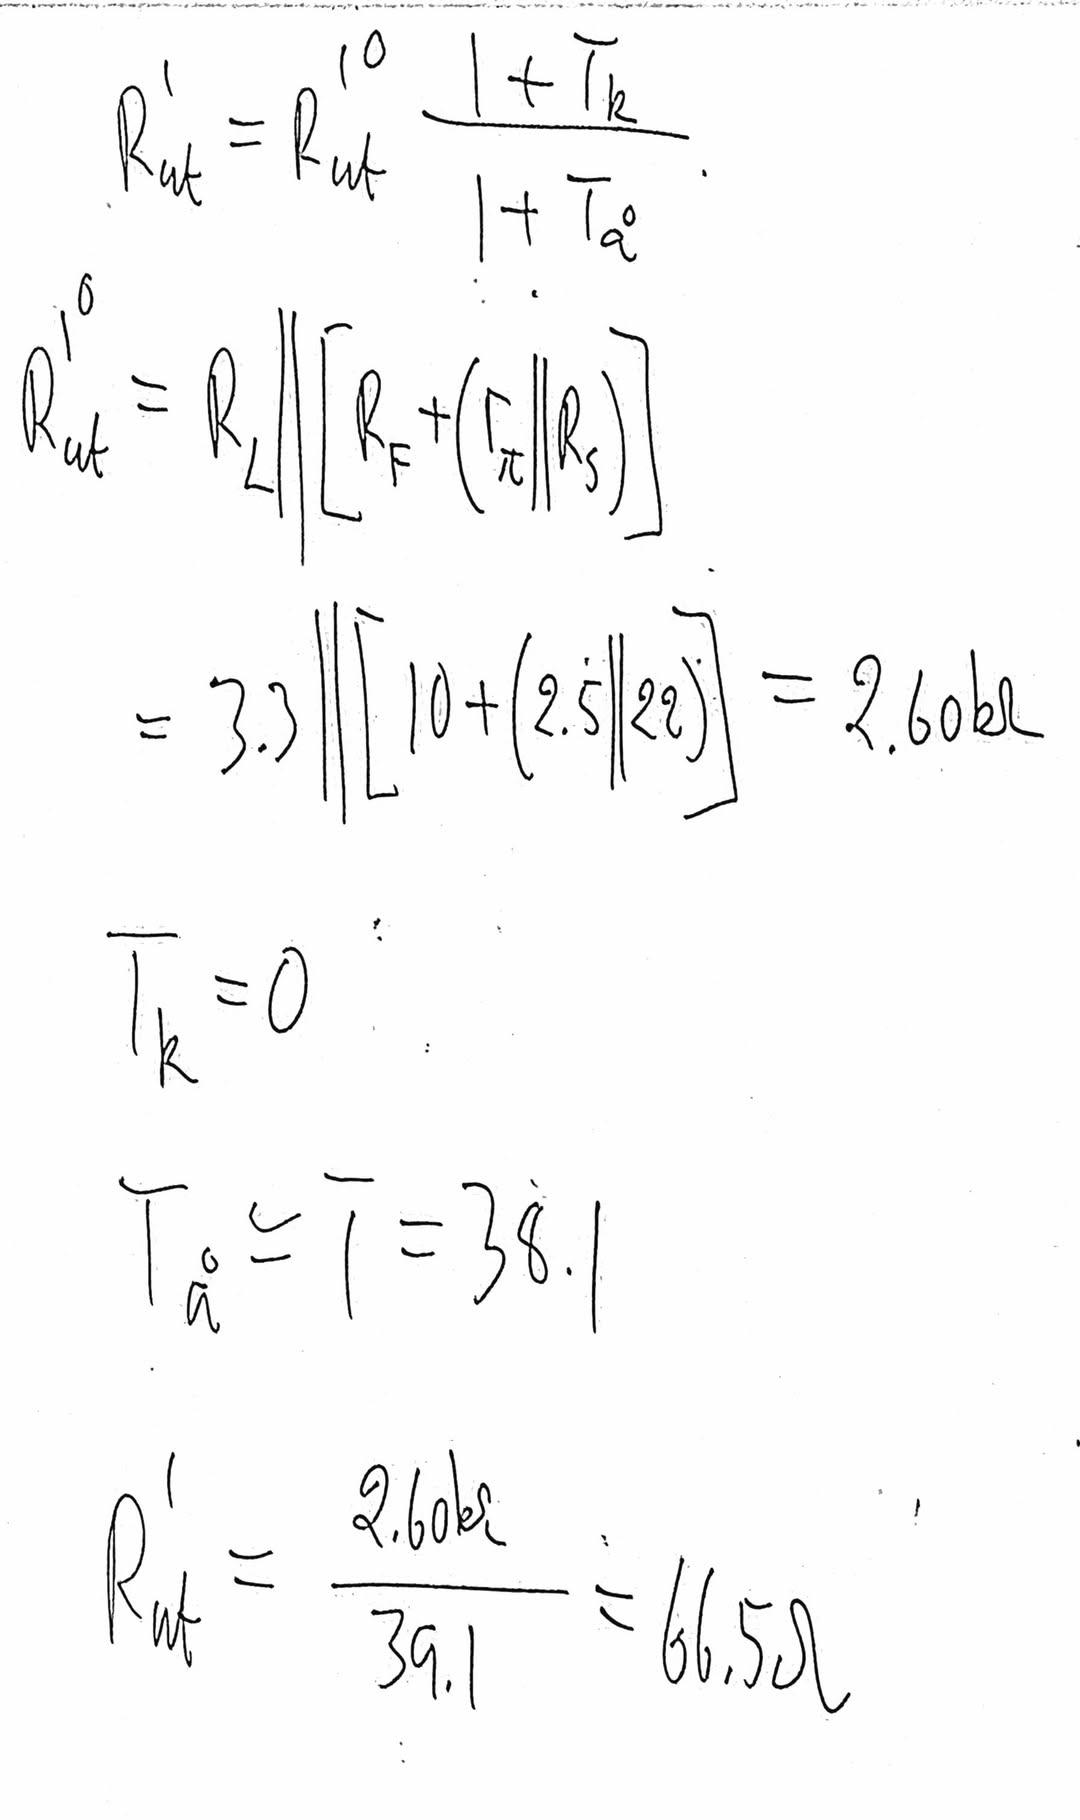 R'ut = R'⁰ut (1 + Tk) / (1 + Tå)
R'⁰ut = RL || [RF + (rπ || RS)]
= 3.3 || [10 + (2.5 || 22)] = 2.60kΩ
Tk = 0
Tå ≅ T = 38.1
R'ut = 2.60kΩ / 39.1 = 66.5Ω